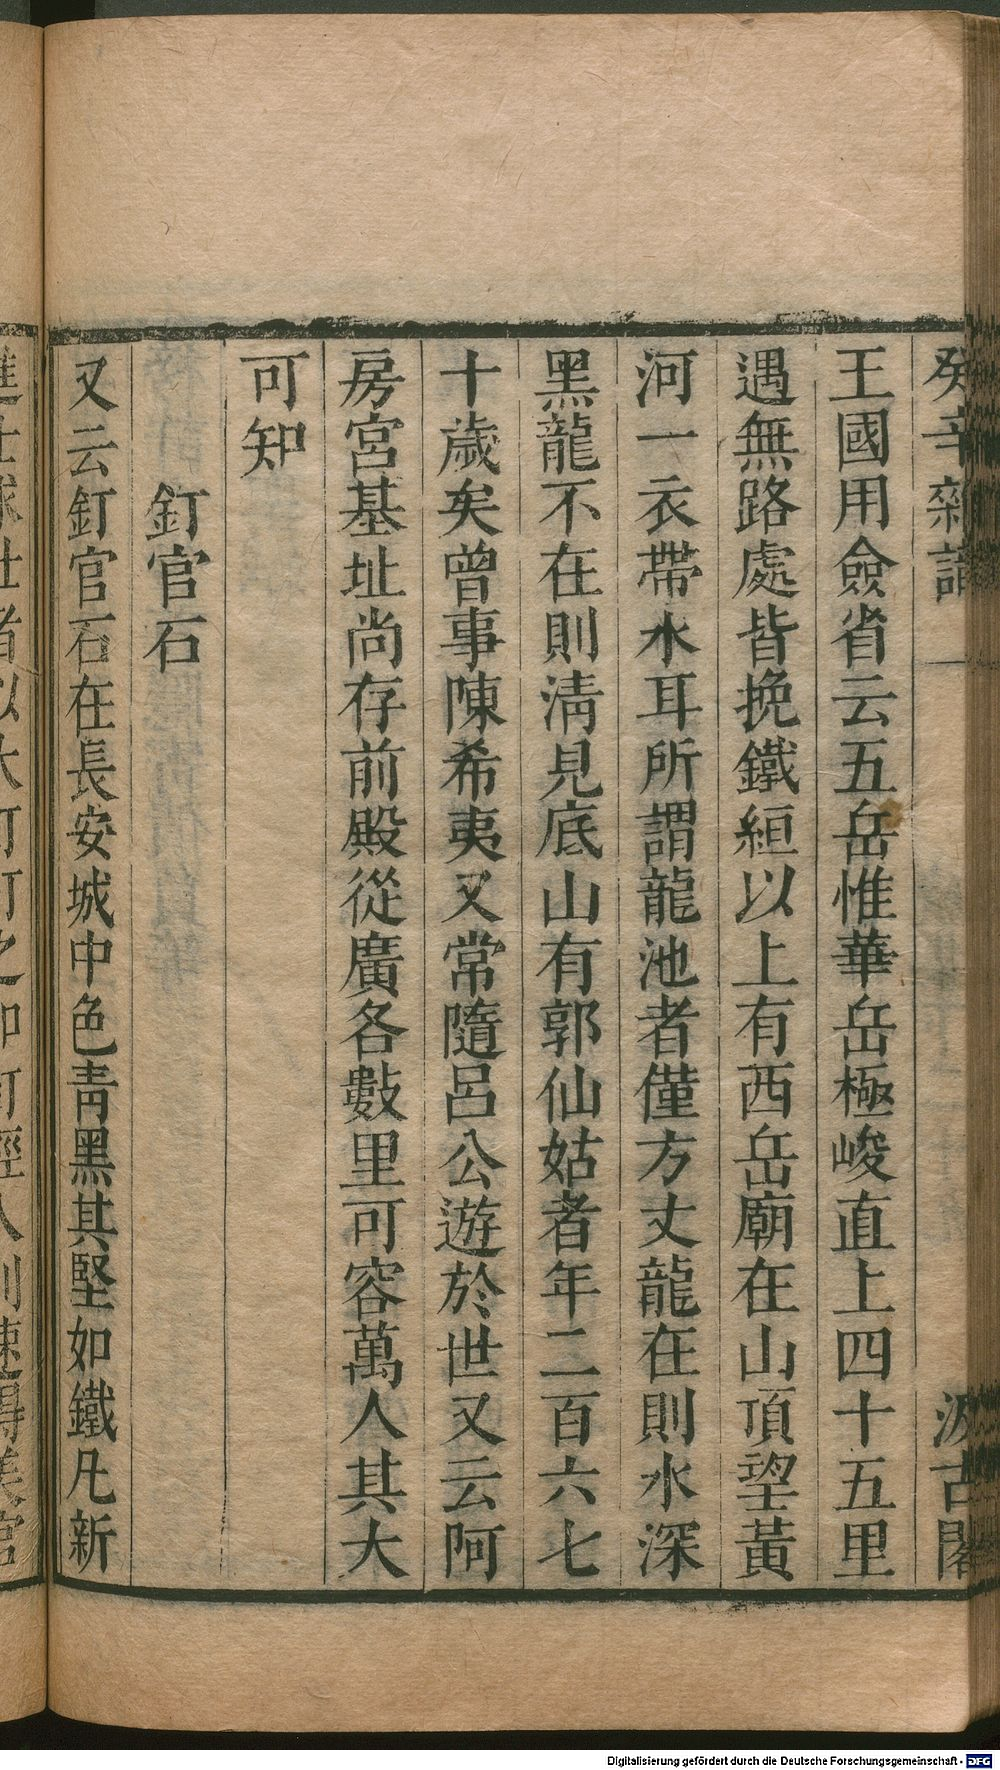 癸辛雜識
汲古閣
王國用僉省云五岳惟華岳極峻直上四十五里
遇無路處皆挽鐵絙以上有西岳廟在山頂望黃
河一衣帶水耳所謂龍池者僅方丈龍在則水深
黑龍不在則淸見底山有郭仙姑者年二百六七
十歲矣曾事陳希夷又常隨呂公遊於世又云阿
房宮基址尚存前殿從廣各數里可容萬人其大
可知
釘官石
又云釘官石在長安城中色靑黑其堅如鐵凡新
進士求仕者以大釘釘之卽釘經入則速得美官
Digitalisierung gefördert durch die Deutsche Forschungsgemeinschaft - DFG